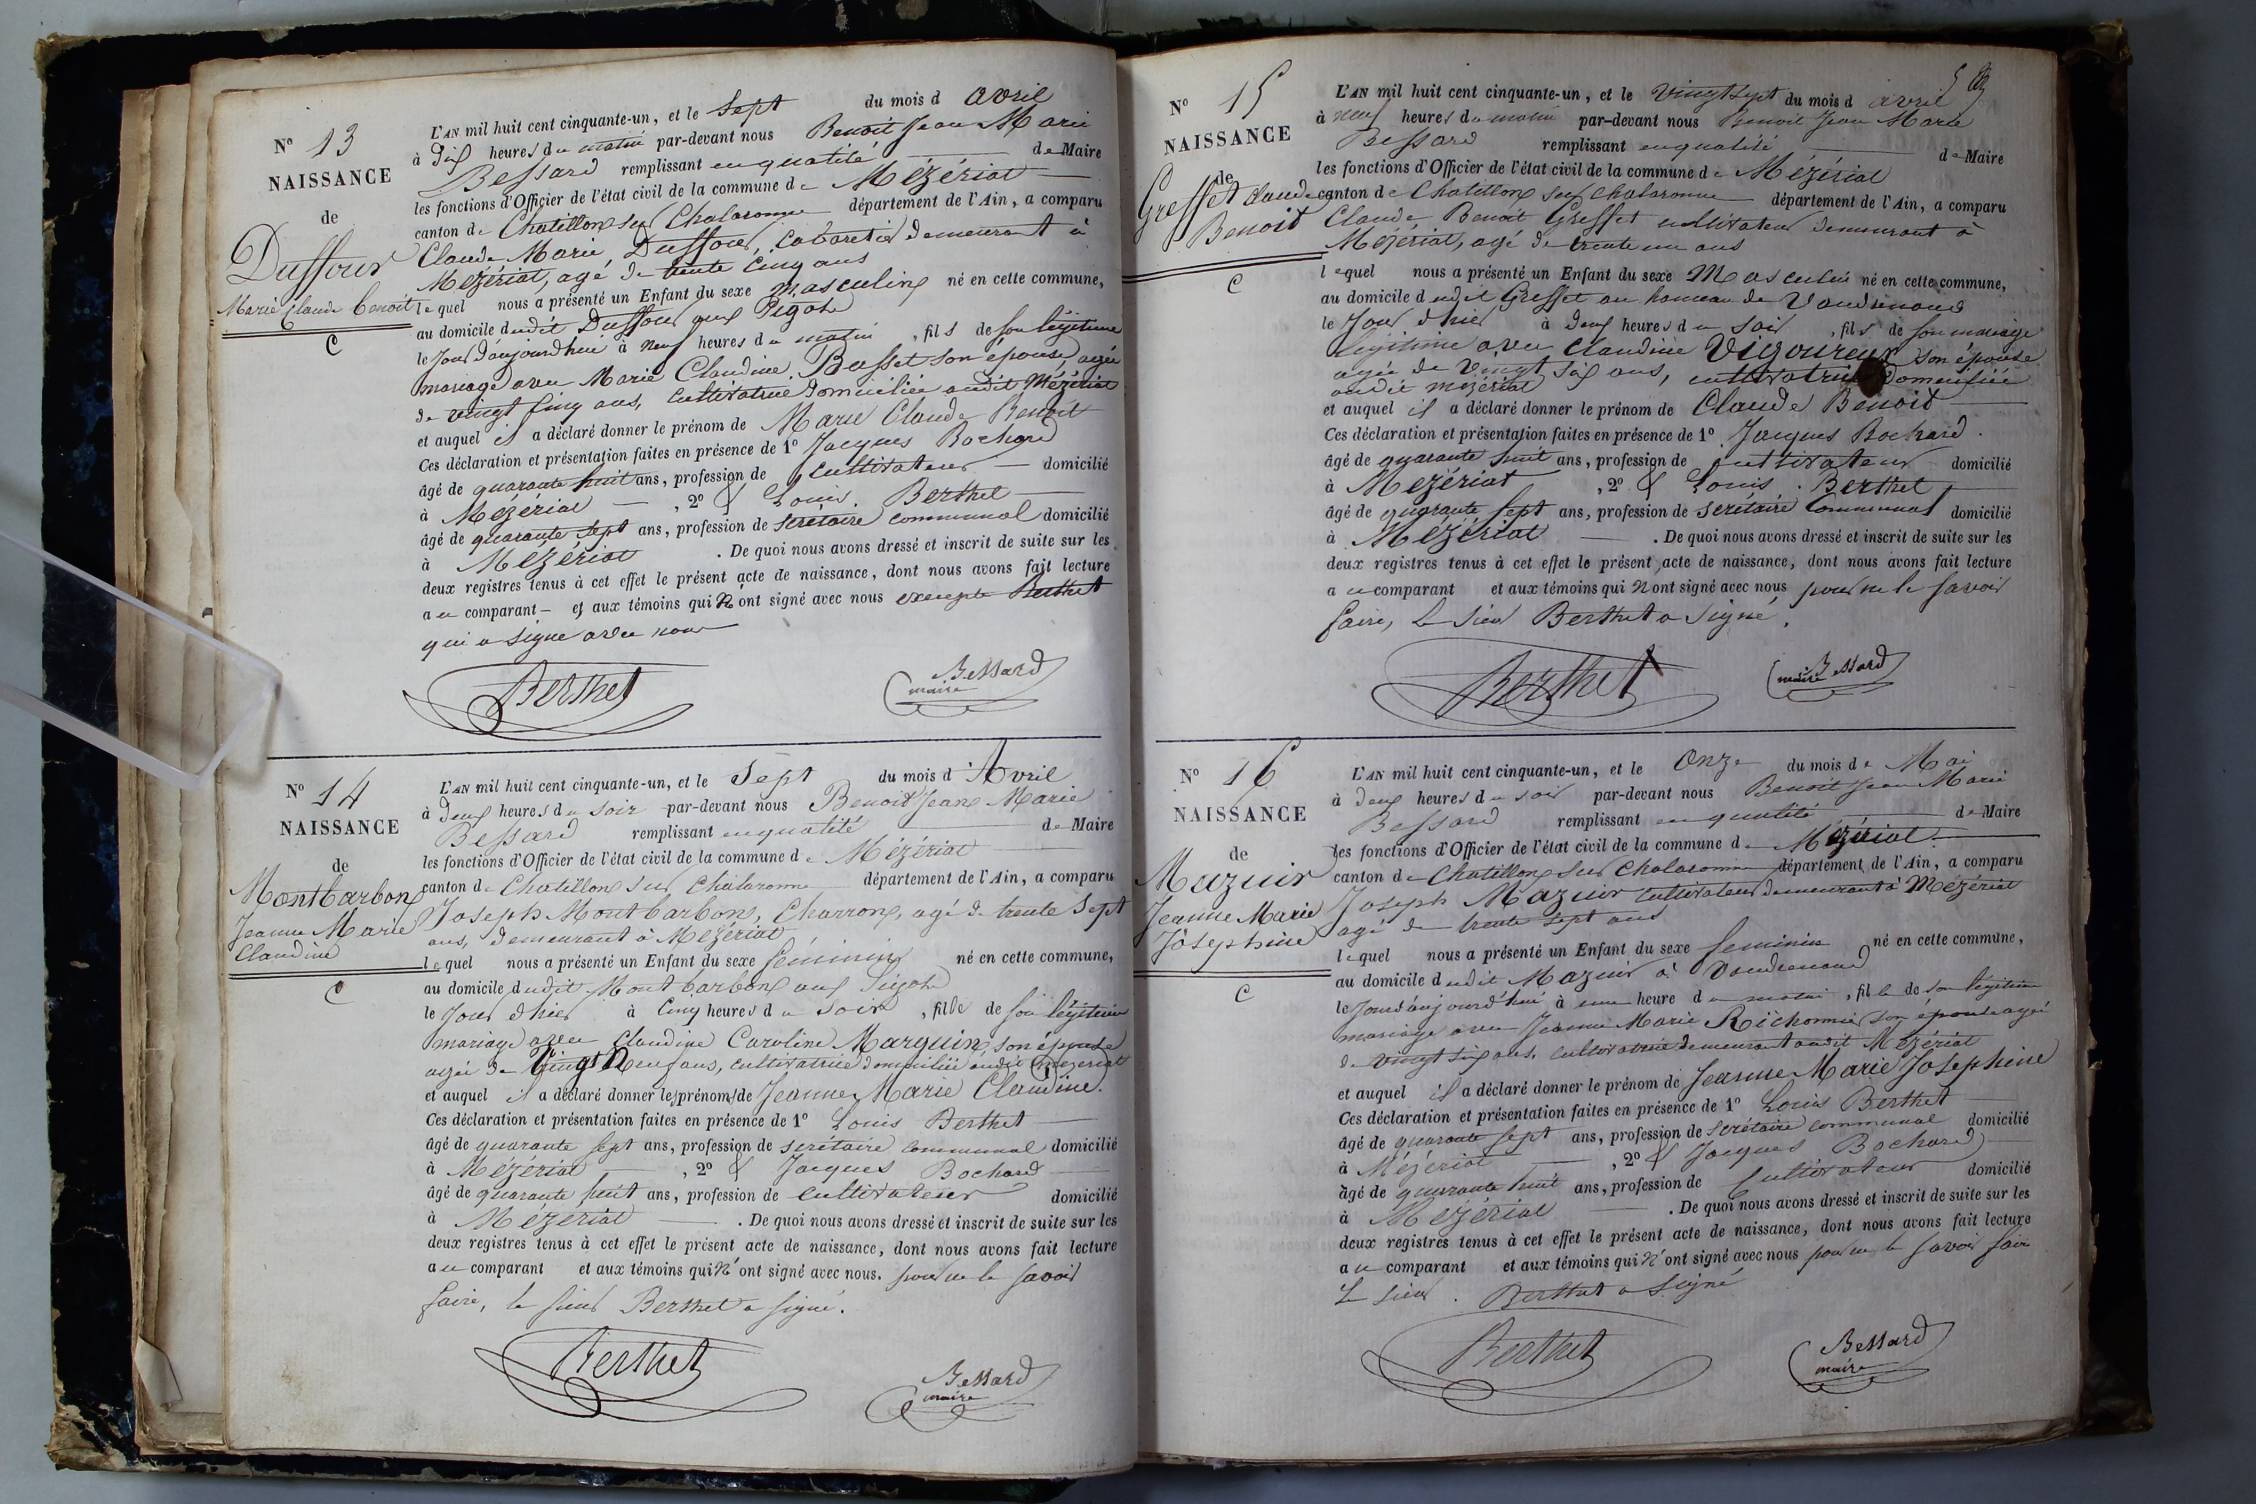 N° 13
NAISSANCE
de
Duffour
Marie Claude Benoit
C
L'AN mil huit cent cinquante-un, et le Sept du mois d avril
à dix heures du matin par-devant nous Benoit Jean Marie
Bessard remplissant en qualité de Maire
les fonctions d'Officier de l'état civil de la commune de Mézériat
canton de Chatillon sur Chalaronne département de l'Ain, a comparu
Claude Marie Duffour, Cabaretier demeurant à
Mézériat, agé de trente cinq ans
lequel nous a présenté un Enfant du sexe masculin né en cette commune,
au domicile dudit Duffour aux
le Jour d'aujourd'hui à neuf heures du matin, fils de son légitime
mariage avec Marie Claudine Basset son épouse agée
de vingt cinq ans, cultivatrice domiciliée audit Mézériat
et auquel il a déclaré donner le prénom de Marie Claude Benoit
Ces déclaration et présentation faites en présence de 1° Jacques Bochard
âgé de quarante huit ans, profession de cultivateur domicilié
à Mézériat, 2° & Louis Berthet
âgé de quarante sept ans, profession de secrétaire communal domicilié
à Mézériat. De quoi nous avons dressé et inscrit de suite sur les
deux registres tenus à cet effet le présent acte de naissance, dont nous avons fait lecture
au comparant et aux témoins qui n'ont signé avec nous excepté Berthet
qui a signé avec nous
Berthet
Bessard
maire
N° 14
NAISSANCE
de
Montbarbon
Jeanne Marie
Claudine
C
L'AN mil huit cent cinquante-un, et le Sept du mois d'Avril
à deux heures du soir par-devant nous Benoit Jean Marie
Bessard remplissant en qualité de Maire
les fonctions d'Officier de l'état civil de la commune de Mézériat
canton de Chatillon sur Chalaronne département de l'Ain, a comparu
Joseph Montbarbon, Charron, agé de trente sept
ans, demeurant à Mézériat
lequel nous a présenté un Enfant du sexe féminin né en cette commune,
au domicile dudit Montbarbon aux
le Jour d'hier à cinq heures du soir, fille de son légitime
mariage avec Claudine Caroline Marguin son épouse
agée de Vingt Neuf ans, cultivatrice domiciliée audit mezeriat
et auquel il a déclaré donner les prénoms de Jeanne Marie Claudine.
Ces déclaration et présentation faites en présence de 1° Louis Berthet
âgé de quarante sept ans, profession de secrétaire communal domicilié
à Mézériat, 2° & Jacques Bochard
âgé de quarante huit ans, profession de cultivateur domicilié
à Mézériat. De quoi nous avons dressé et inscrit de suite sur les
deux registres tenus à cet effet le présent acte de naissance, dont nous avons fait lecture
au comparant et aux témoins qui n'ont signé avec nous. pour ne le savoir
faire, le sieur Berthet a signé.
Berthet
Bessard
maire
5
N° 15
NAISSANCE
de
Greffet Claude
Benoit
C
L'AN mil huit cent cinquante-un, et le vingt sept du mois d avril
à neuf heures du matin par-devant nous Benoit Jean Marie
Bessard remplissant en qualité de Maire
les fonctions d'Officier de l'état civil de la commune de Mézériat
canton de Chatillon sur Chalaronne département de l'Ain, a comparu
Claude Benoit Greffet cultivateur demeurant à
Mézériat, agé de trente un ans
lequel nous a présenté un Enfant du sexe Masculin né en cette commune,
au domicile dudit Greffet au hameau de Vaudrenand
le Jour d'hier à deux heures du soir, fils de son mariage
légitime avec Claudine Vigoureux son épouse
agée de vingt six ans, cultivatrice domiciliée
audit mézériat
et auquel il a déclaré donner le prénom de Claude Benoit
Ces déclaration et présentation faites en présence de 1° Jacques Bochard.
âgé de quarante huit ans, profession de cultivateur domicilié
à Mézériat, 2° & Louis Berthet
âgé de quarante sept ans, profession de secrétaire communal domicilié
à Mézériat. De quoi nous avons dressé et inscrit de suite sur les
deux registres tenus à cet effet le présent acte de naissance, dont nous avons fait lecture
au comparant et aux témoins qui n'ont signé avec nous pour ne le savoir
faire, le sieur Berthet a signé.
Berthet
Bessard
maire
N° 16
NAISSANCE
de
Mazuir
Jeanne Marie
Joséphine
C
L'AN mil huit cent cinquante-un, et le onze du mois de Mai
à deux heures du soir par-devant nous Benoit Jean Marie
Bessard remplissant en qualité de Maire
les fonctions d'Officier de l'état civil de la commune de Mézériat.
canton de Chatillon sur Chalaronne département de l'Ain, a comparu
Joseph Mazuir cultivateur demeurant à Mézériat
agé de trente sept ans
lequel nous a présenté un Enfant du sexe féminin né en cette commune,
au domicile dudit Mazuir à Vaudrenand
le Jour d'aujourd'hui à une heure du matin, fille de son légitime
mariage avec Jeanne Marie Richonnier son épouse agée
de vingt six ans, cultivatrice demeurant audit Mézériat
et auquel il a déclaré donner le prénom de Jeanne Marie Joséphine
Ces déclaration et présentation faites en présence de 1° Louis Berthet
âgé de quarante sept ans, profession de secrétaire communal domicilié
à Mézériat, 2° & Jacques Bochard
âgé de quarante huit ans, profession de cultivateur domicilié
à Mézériat. De quoi nous avons dressé et inscrit de suite sur les
deux registres tenus à cet effet le présent acte de naissance, dont nous avons fait lecture
au comparant et aux témoins qui n'ont signé avec nous pour ne le savoir faire
Le sieur. Berthet a signé
Berthet
Bessard
maire